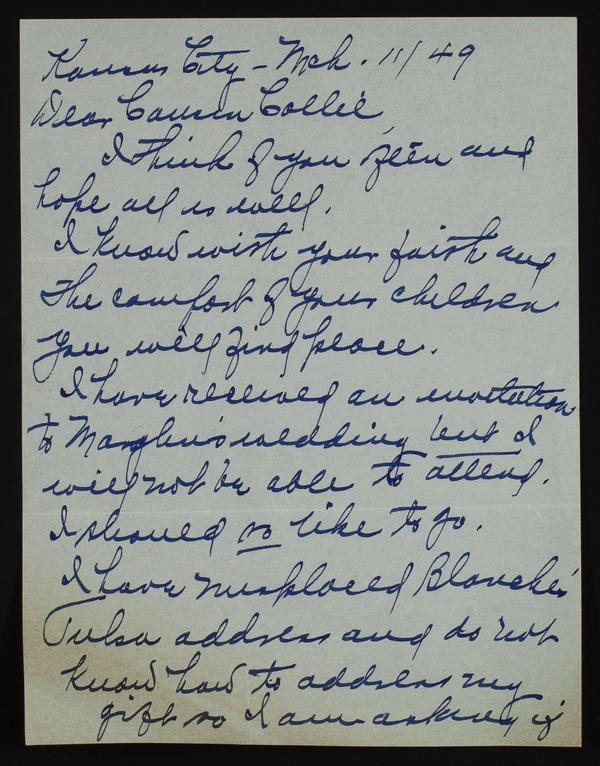 Kansas City - Mch. 11/49
Dear Cousin Collie,
I think of you often and
hope all is well.
I know with your faith and
the comfort of your children
you will find peace.
I have received an invitation
to wedding but I
will not be able to attend.
I should so like to go.
I have misplaced Blanche's
Tulsa address and do not
know how to address my
gift so I am asking if